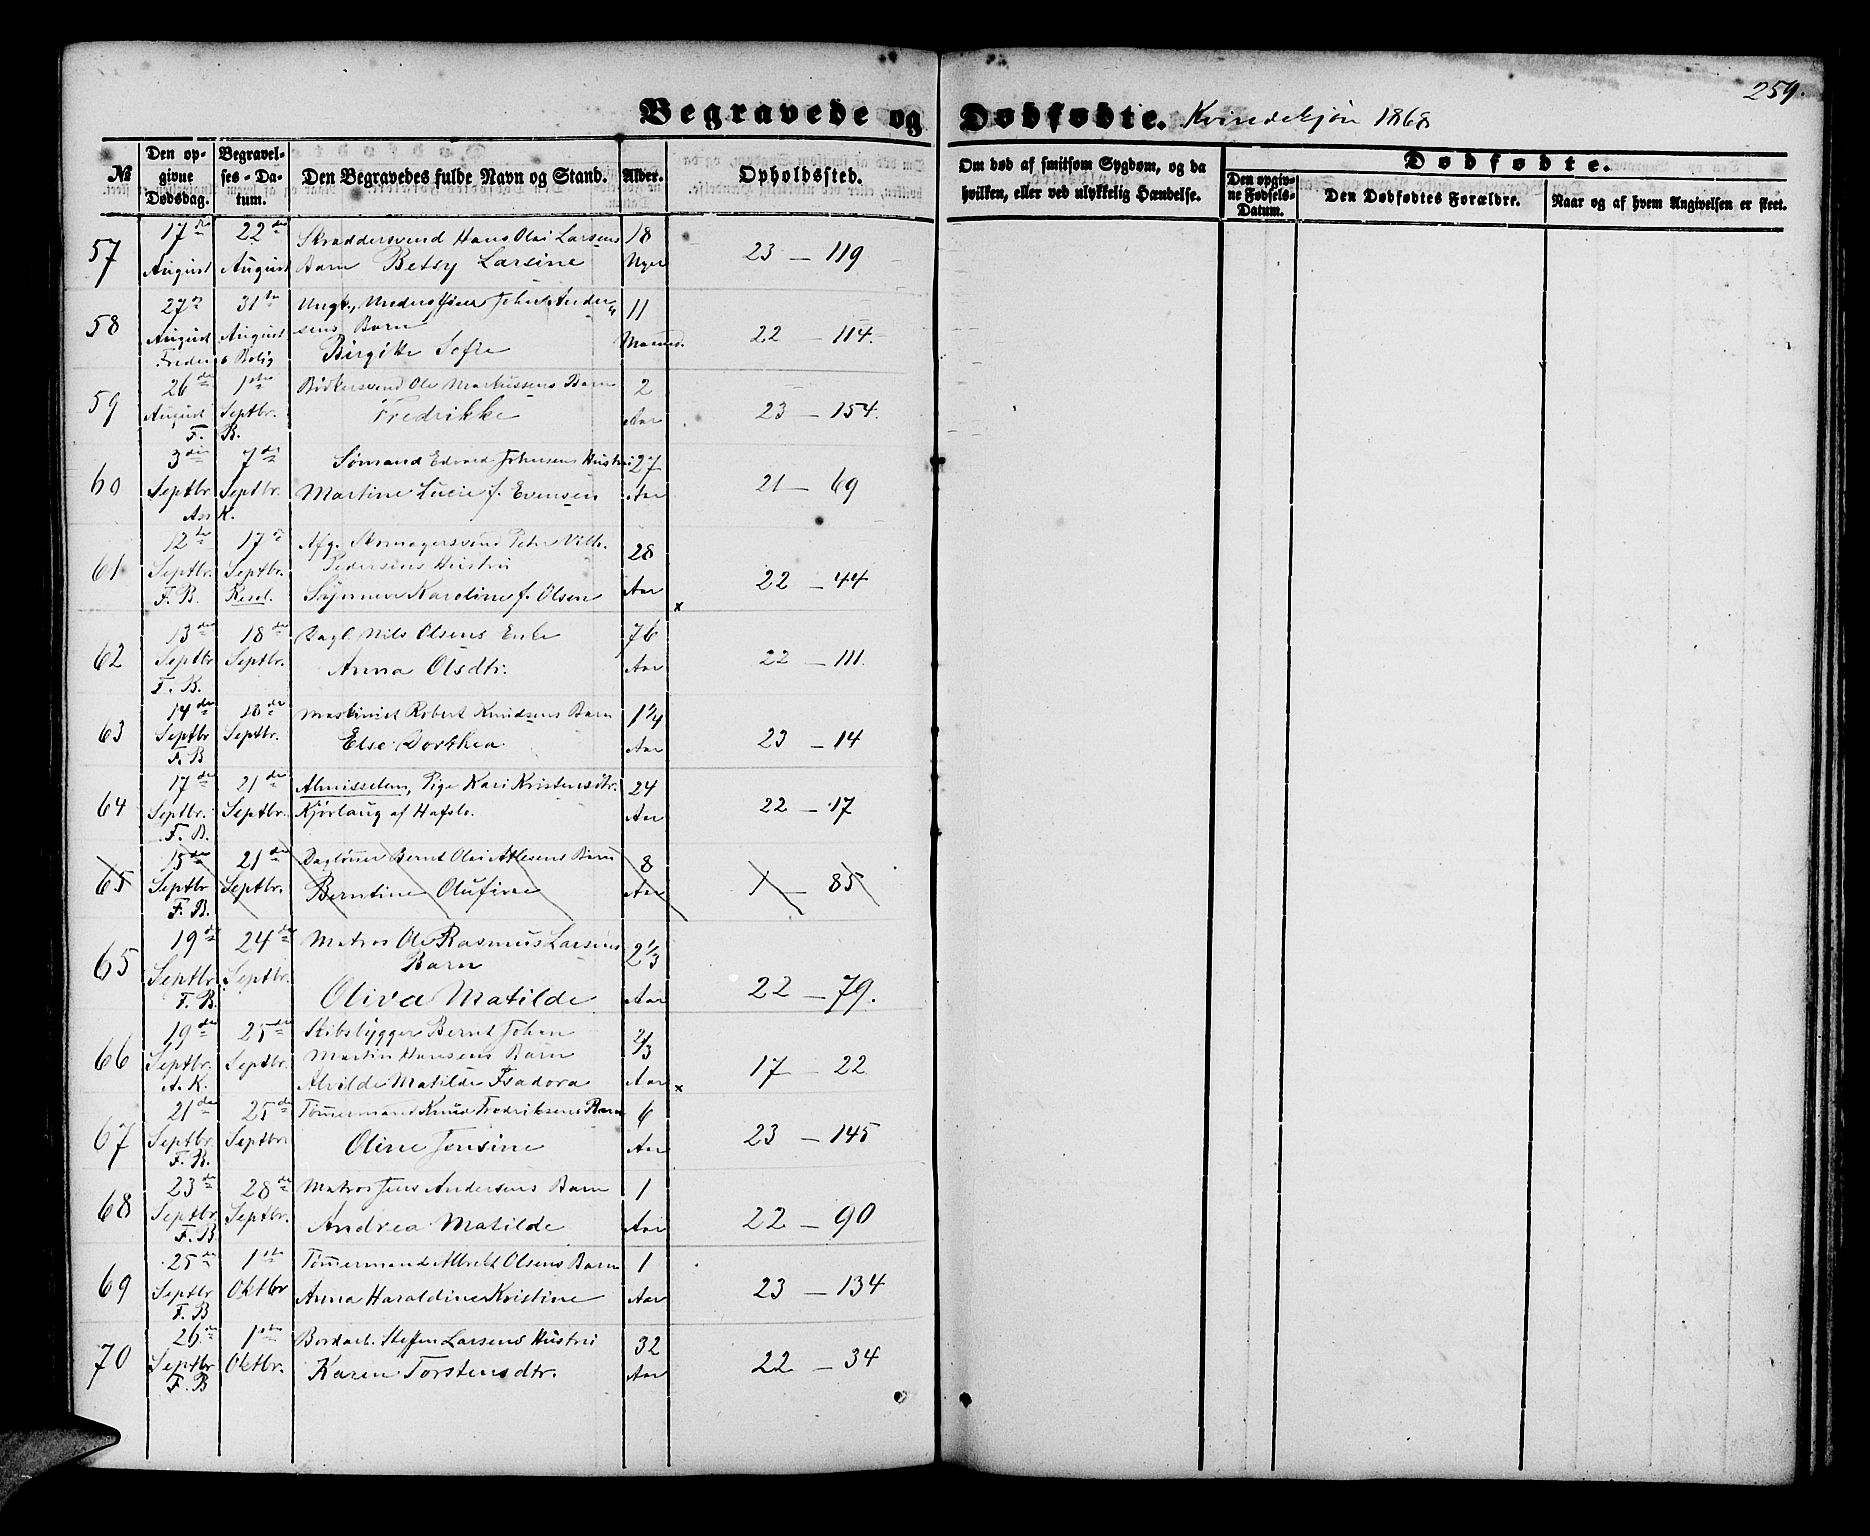 259.
Begravede og Dødfødte. Kvindekjøn 1868
№
Den opgivne Dødsdag.
Begravelses-Datum.
Den Begravedes fulde Navn og Stand.
Alder.
Opholdssted.
Om død af smitsom Sygdom, og da hvilken, eller ved ulykkelig Hændelse.
Dødfødte.
Den opgivne Fødsels-Datum.
Den Dødfødtes Forældre.
Naar og af hvem Angivelsen er skeet.
57 17de August 22de August Skræddersvend Hans Olai Larsens 18
Barn Betsy Larsine 23 — 119
58 27de August 31te August John Andersens Barn 11 Maaned.
Birgitte Sofie 22 — 114.
59 26de August 1ste Septbr. Bødkersvend Ole Markussens Barn 2 Aar
F. B. Fredrikke 23 — 154.
60 3die Septbr 7de Septbr. Sømand Edvard Johnsens Hustru 27 Aar
K. Martine Lucie f. Evensen 21 — 69
61 12te Septbr. 17de Septbr. Afg. Skomagersvend Peter Vilh. Pedersens Hustru 28 Aar
F. B. Karoline f. Olsen 22 — 44 x
62 13de Septbr 18de Septbr. Dagl. Nils Olsens Enke 76 Aar
F. B. Anna Olsdtr. 22 — 111.
63 14de Septbr 18de Septbr. Maskinist Robert Knudsens Barn 1 1/4 Aar
F. B Else Dorthea 23 — 14
64 17de Septbr. 21de Septbr. Almisselem, Pige Kari Kristensdtr. 24 Aar
F. B. Kjørlaug af Hafslo. 22 — 17
65 15de Septbr 21de Septbr. Dagløner Bernt Olai Atlesens Barn 8 Aar
F. B. Berntine Olufine 1 — 85
65 19de Septbr 24de Septbr. Matros Ole Rasmus Larsens Barn 2 1/3 Aar
F. B. Oliva Matilde 22 — 79.
66 19de Septbr. 25de Septbr. Skibsbygger Bernt Johan Martin Hansens Barn 2/3 Aar
A. K. Alvilde Matilde Isadora 17 — 22 x
67 21de Septbr 25de Septbr Tømmermand Knud Fredriksens Barn 6 Aar
F. B. Oline Jensine 23 — 145
68 23de Septbr 28de Septbr. Matros Jens Andersens Barn 1 Aar
F. B Andrea Matilde 22 — 90
69 25de Septbr 1ste Oktbr Tømmermand Albrekt Olsens Barn 1 Aar
F. B Anna Haraldine Kristine 23 — 134
70 26de Septbr 1ste Oktbr. Bordarb. Steffen Larsens Hustru 32 Aar
F. B Karen Torstensdtr. 22 — 34